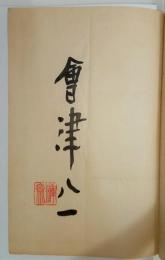 會津八一